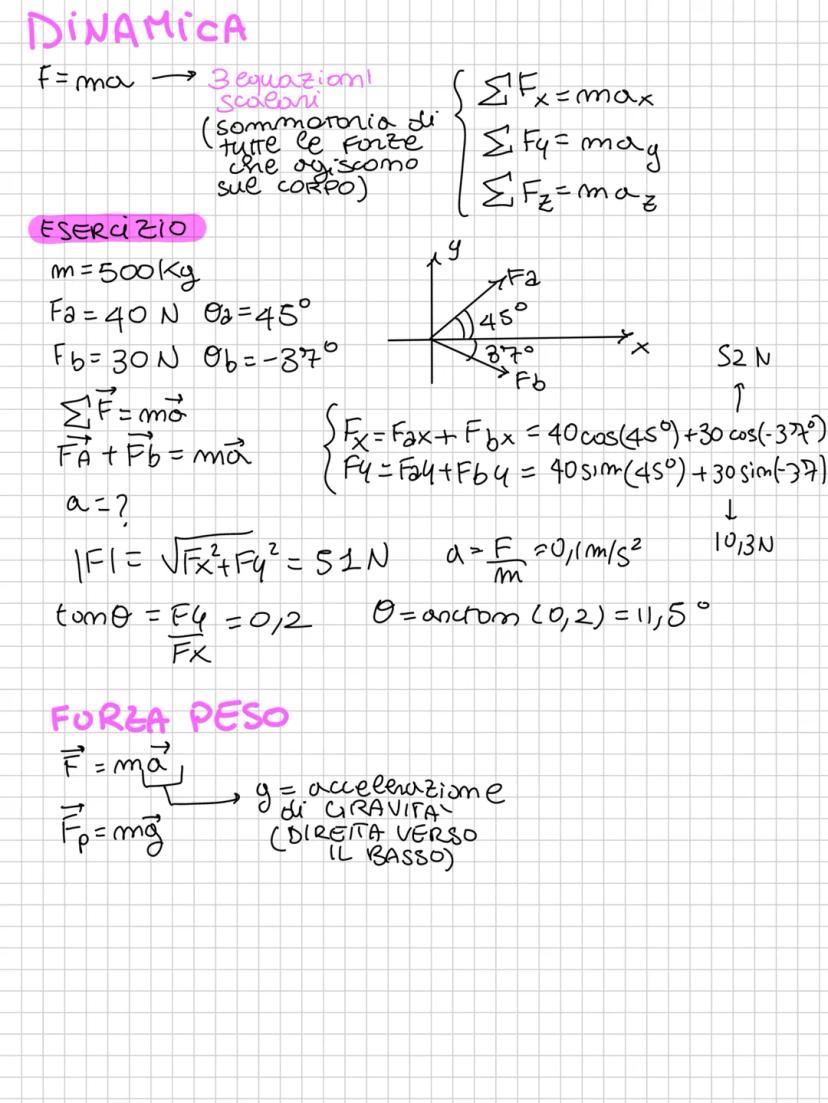 DINAMICA
F = ma → 3 equazioni
scalari
(sommatoria di
tutte le forze
che agiscono
sul CORPO)
∑Fx = max
∑Fy = may
∑Fz = maz
ESERCIZIO
m = 500 Kg
Fa = 40 N θa = 45°
Fb = 30 N θb = -37°
y
Fa
45°
x
37°
Fb
52 N
∑F⃗ = ma⃗
F⃗A + F⃗b = ma⃗
Fx = Fax + Fbx = 40 cos(45°) + 30 cos(-37°)
Fy = Fay + Fby = 40 sin(45°) + 30 sin(-37)
10,3 N
a = ?
|F| = √Fx² + Fy² = 51 N a = F/m = 0,1 m/s²
tanθ = Fy/Fx = 0,2 θ = arctan (0,2) = 11,5°
FORZA PESO
F⃗ = ma⃗
g = accelerazione
di GRAVITA'
(DIRETTA VERSO
IL BASSO)
F⃗p = mg⃗